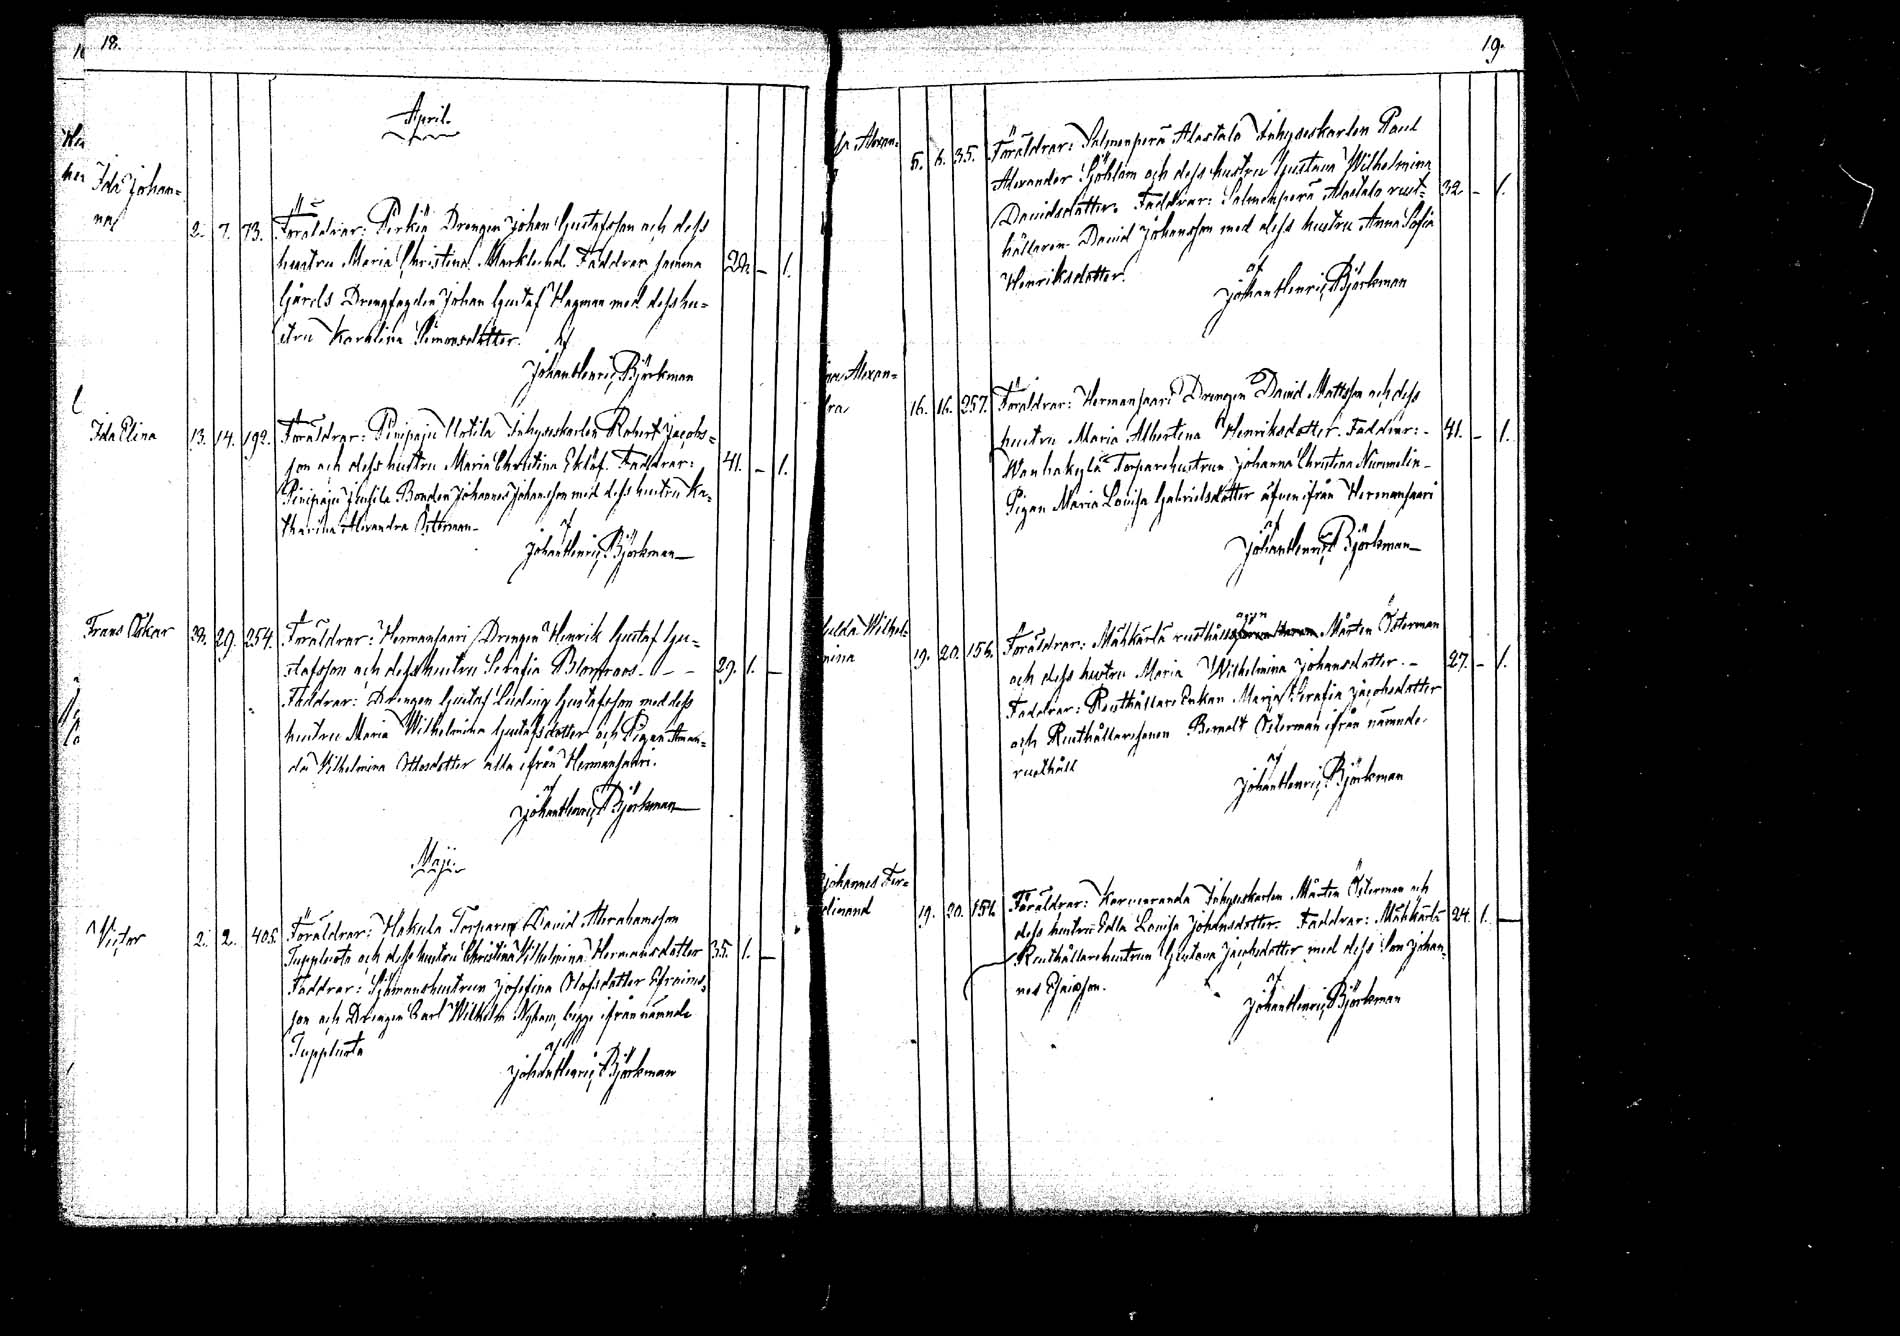 18.
April.
Ida Johan=
na
2. 7. 73. Föräldrar: Pirkiä Drengen Johan Gustafsson och dess
hustru Maria Christina Marklund. Faddrar samma 22. – 1.
Gårds Drengfogden Johan Gustaf Hagman med dess hu=
stru Karolina Simonsdotter.
af
Johan Henric Björkman
Ida Elina 13. 14. 192. Föräldrar: Pinipaju Uotila Inhyseskarlen Robert Jacobs=
son och dess hustru Maria Christina Eklöf. Faddrar: 41. – 1.
Pinipaju Jussila Bonden Johannes Johansson med dess hustru Ka=
tharina Alexandra Österman
af
Johan Henric Björkman
Frans Oskar 28. 29. 254. Föräldrar: Hermansaari Drengen Henrik Gustaf Gu=
stafsson och dess hustru Serafia Blomroos. – – 29. 1. –
Faddrar: Drengen Gustaf Ludvig Gustafsson med dess
hustru Maria Wilhelmina Gustafsdotter och Pigan Aman=
da Wilhelmina Ottosdotter alla ifrån Hermansaari.
af
Johan Henric Björkman
Maji.
Victor 2. 2. 405. Föräldrar: Hakula Torparen David Abrahamsson
Tuppluota och dess hustru Christina Wilhelmina Hermansdotter 35. 1. –
Faddrar: Sjömanshustrun Josefina Olofsdotter Efraims=
son och Drengen Carl Wilhelm Nyholm, begge ifrån nämnde
Tuppluota
af
Johan Henric Björkman
19.
Alexan=
5. 6. 35. Föräldrar: Salmenperä Alastalo Inhyseskarlen Paul
Alexander Sjöblom och dess hustru Gustava Wilhelmina
Davidsdotter. Faddrar: Salmenperä Alastalo rust= 32 – 1.
hållaren David Johansson med dess hustru Anna Sofia
Henriksdotter.
af
Johan Henric Björkman
Alexan=
dra
16. 16. 257. Föräldrar: Hermansaari Drengen David Mattsson och dess
hustru Maria Albertina Henriksdotter. Faddrar: – 41. – 1.
Wanhakylä Torparehustrun Johanna Christina Nummelin –
Pigan Maria Lovisa Gabrielsdotter äfven ifrån Hermansaari
af
Johan Henric Björkman
Hulda Wilhel=
mina
19. 20. 156. Föräldrar: Mähkärlä rusthålls Mårten Österman
och dess hustru Maria Wilhelmina Johansdotter. – 27. – 1.
Faddrar: Rusthållare Enkan Maria Serafia Jacobsdotter
och Rusthållaresonen Berndt Österman ifrån nämnde
rusthåll
af
Johan Henric Björkman
Johannes Fer=
dinand
19. 20. 154. Föräldrar: Karmeranda Inhyseskarlen Mårten Österman och
dess hustru Edla Lovisa Johansdotter. Faddrar: Mähkärlä 24. 1. –
Rusthållarehustrun Gustava Jacobsdotter med dess Son Johan=
nes Esaisson.
af
Johan Henric Björkman